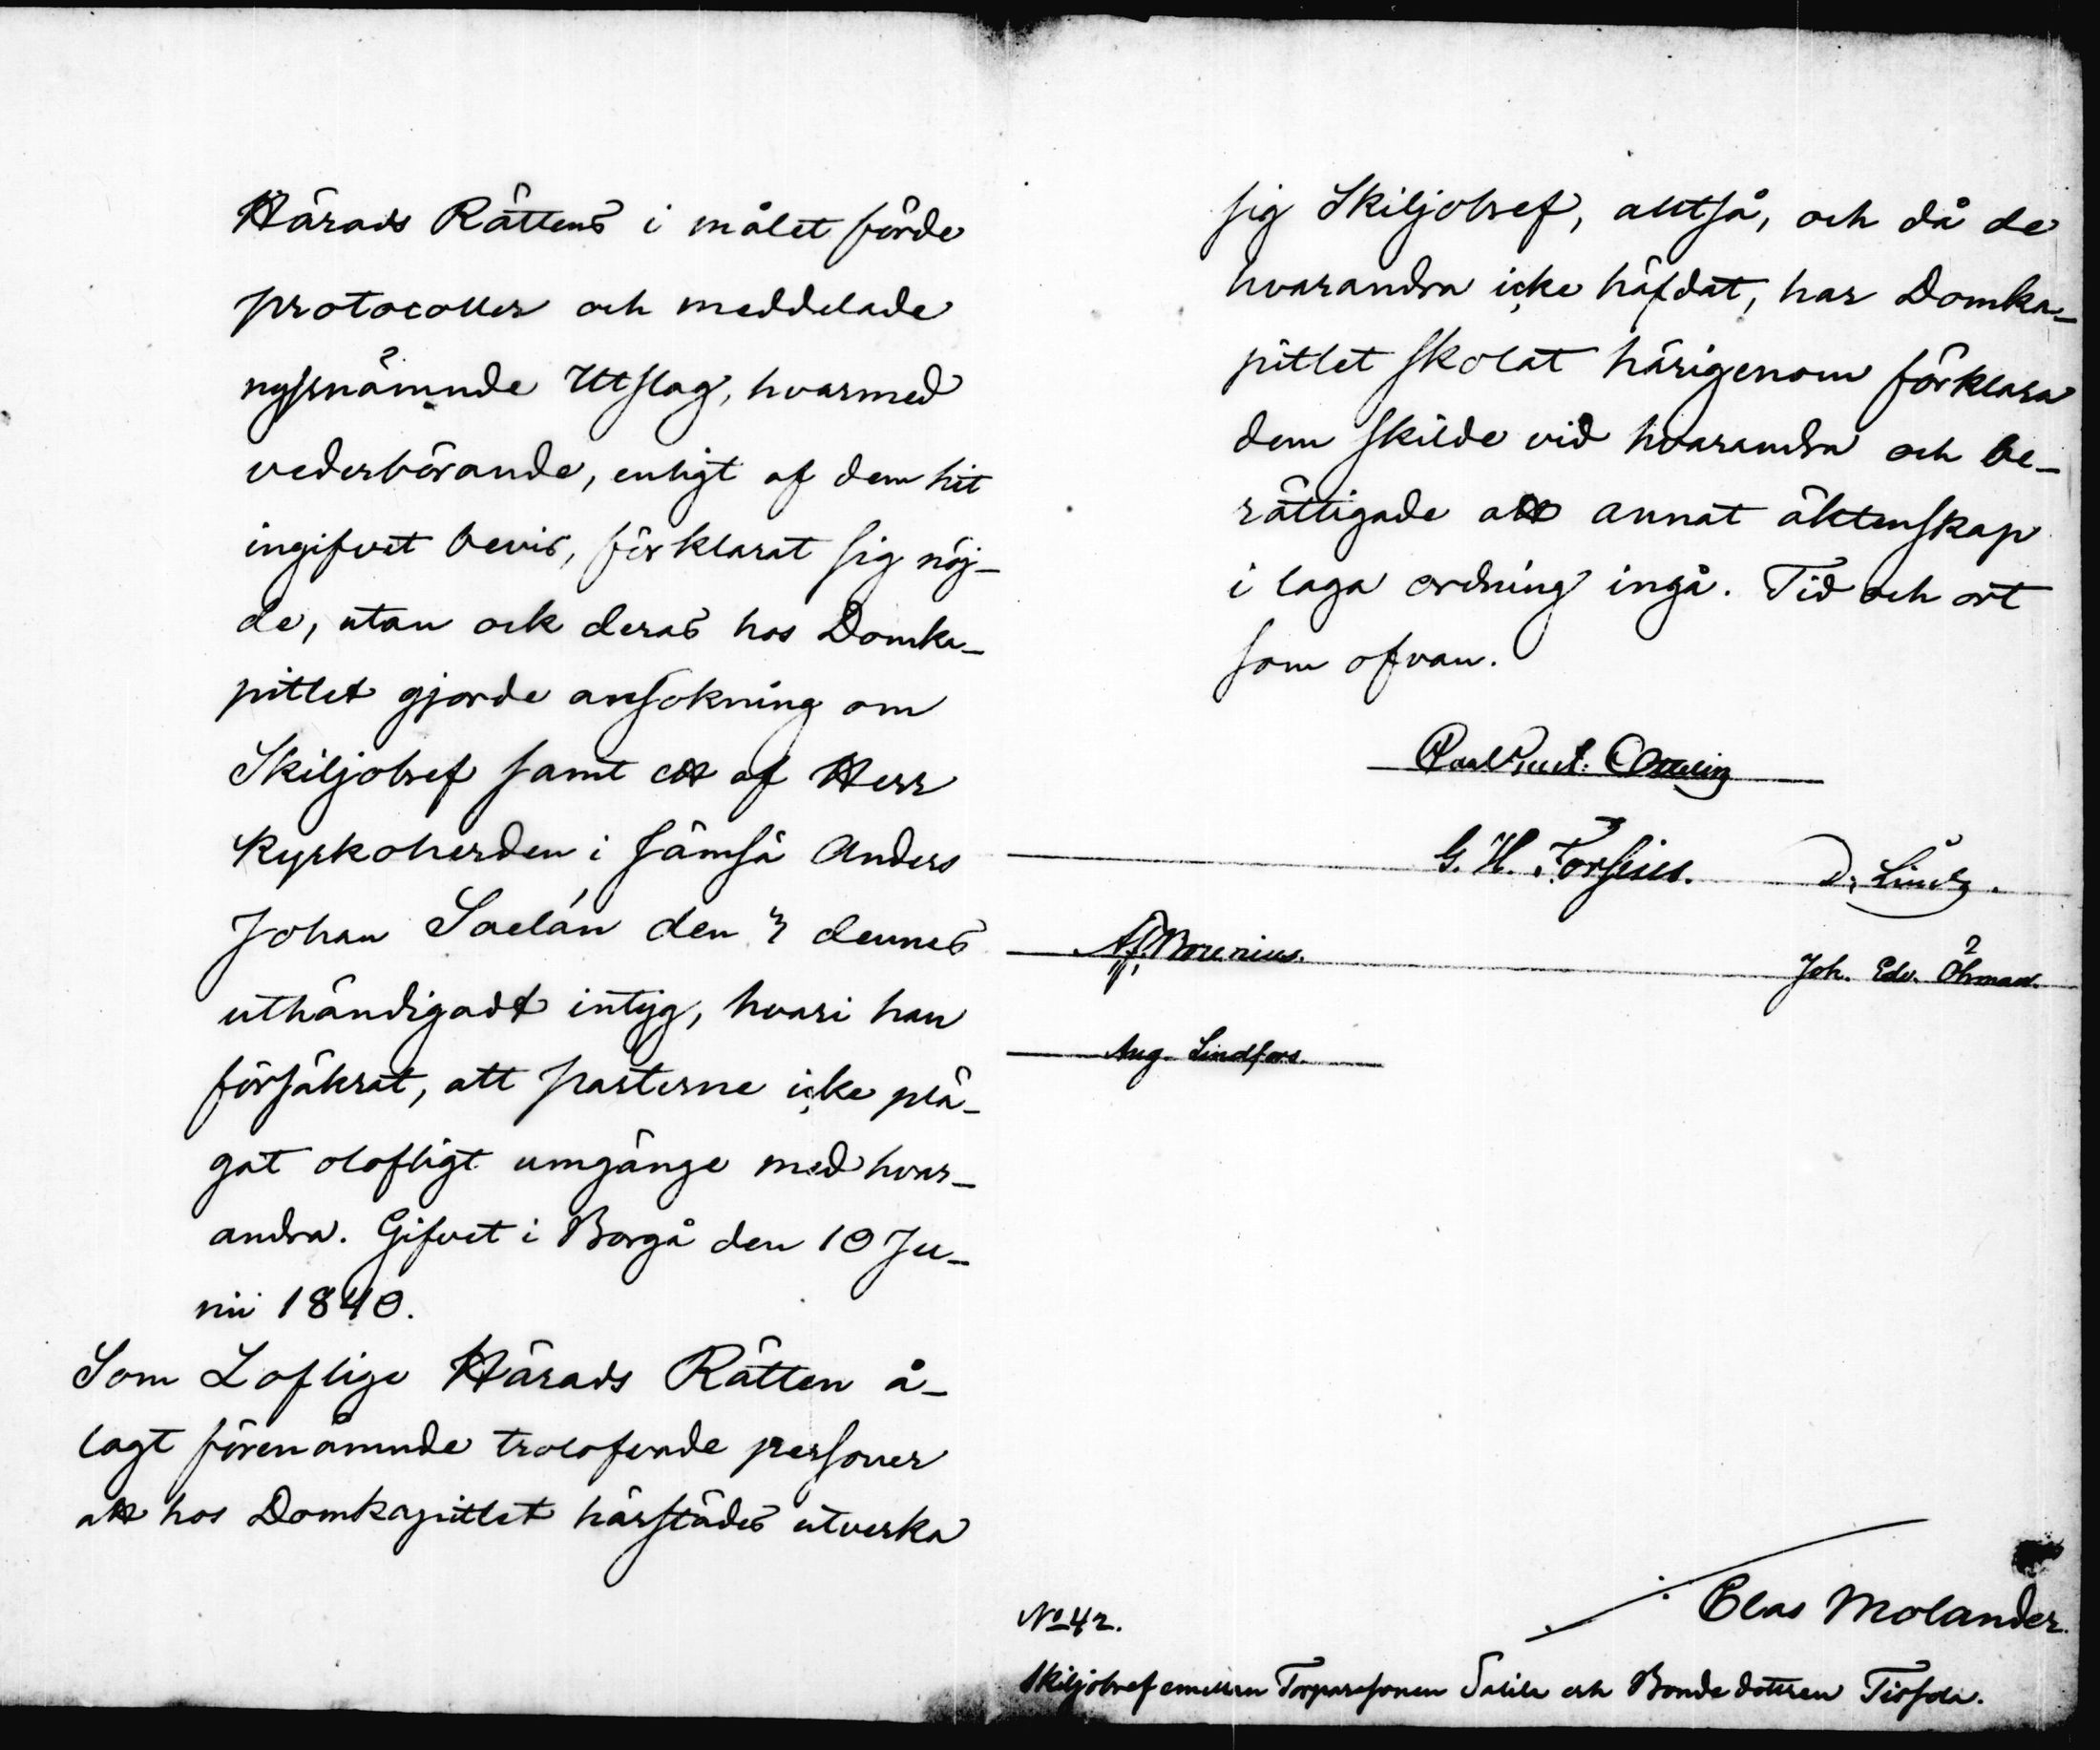 Härads Rättens i målet förde
protocoller och meddelade
nyssnämnde Utslag, hvarmed
vederbörande, enligt af dem hit
ingifvet bevis, förklarat sig nöj-
de, utan ock deras hos Domka-
pitlet gjorde ansökning om
Skiljobref samt ett af Herr
Kyrkoherden i Jämsä Anders
Johan Saelán den dennes
uthändigadt intyg, hvari han
försäkrat, att parterne icke plä-
gat olofligt umgänge med hvar-
andra. Gifvet i Borgå den 10 Ju-
nii 1840.
Som Loflige Härads Rätten å-
lagt förenämnde trolofvade personer
att hos Domkapitlet härstädes utverka
sig Skiljobref, alltså, och då de
hvarandra icke häfdat, har Domka-
pitlet skolat härigenom förklara
dem skilde vid hvarandra och be-
rättigade att annat äktenskap
i laga ordning ingå. Tid och ort
som ofvan.
G. H. Forsius. D. Lindh.
Borenius. Joh. Edv. Öhman.
Aug. Lindfors.
Clas Molander.
No 42.
Skiljobref emellan Torparesonen och Bondedottren